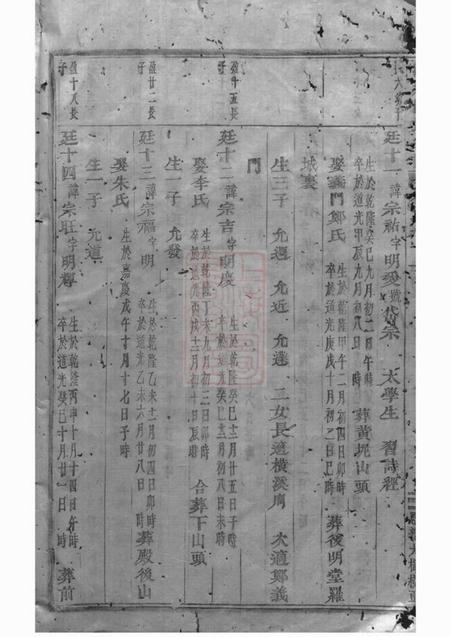 廷十一諱宗祐字明愛號岱宗 太學生 習詩經
生於乾隆癸巳九月初二日午時
卒於道光甲辰九月初八日 時 葬黃坭山頭
娶義門鄭氏 生於乾隆甲午二月初四日卯時
卒於道光庚戌十月初二日巳時 葬後明堂羅
城裏
生三子 允 允近 允 二女長適橫溪周 次適鄭義
門
盈十五長
子
廷十二諱宗吉字明慶 生於乾隆癸巳十二月廿五日子時
卒於道光癸巳十二月初八日未時
娶李氏 生於乾隆丁未九月初三日卯時
卒於道光丙戌十二月初十日辰時 合葬下山頭
生一子 允發
盈廿二長
子
廷十三諱宗福字明 生於乾隆乙未十一月初四日卯時
卒於道光乙未六月初八日 時 葬殿後山
娶朱氏 生於嘉慶戊午十月十七日子時
生一子 允道
盈十八長
子
廷十四諱宗旺字明輝 生於乾隆丙申十月十四日午時
卒於道光癸巳十月廿一日 時 葬前